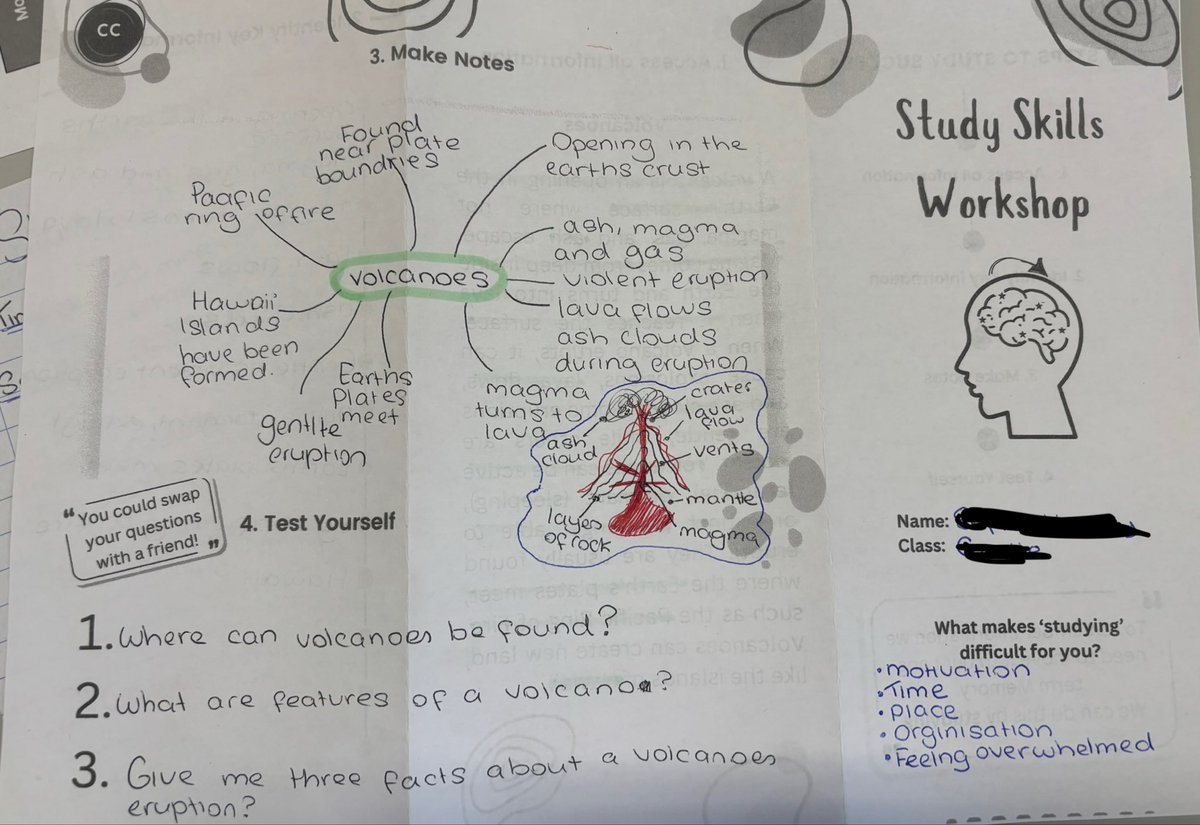 CC
3. Make Notes
Found
near plate
boundries
Opening in the
earths crust
Pacific
ring of fire
ash, magma
and gas
volcanoes
violent eruption
lava flows
ash clouds
during eruption
Hawaii
Islands
have been
formed.
Earths
Plates
meet
gentlte
eruption
magma
turns to
lava
crater
lava
flow
ash
cloud
vents
mantle
magma
layes
of rock
“ You could swap
your questions
with a friend! ”
4. Test Yourself
1. Where can volcanoes be found?
2. What are features of a volcano?
3. Give me three facts about a volcanoes
eruption?
Study Skills
Workshop
Name:
Class:
What makes ‘studying’
difficult for you?
• motivation
• Time
• place
• orginisation
• Feeling overwhelmed